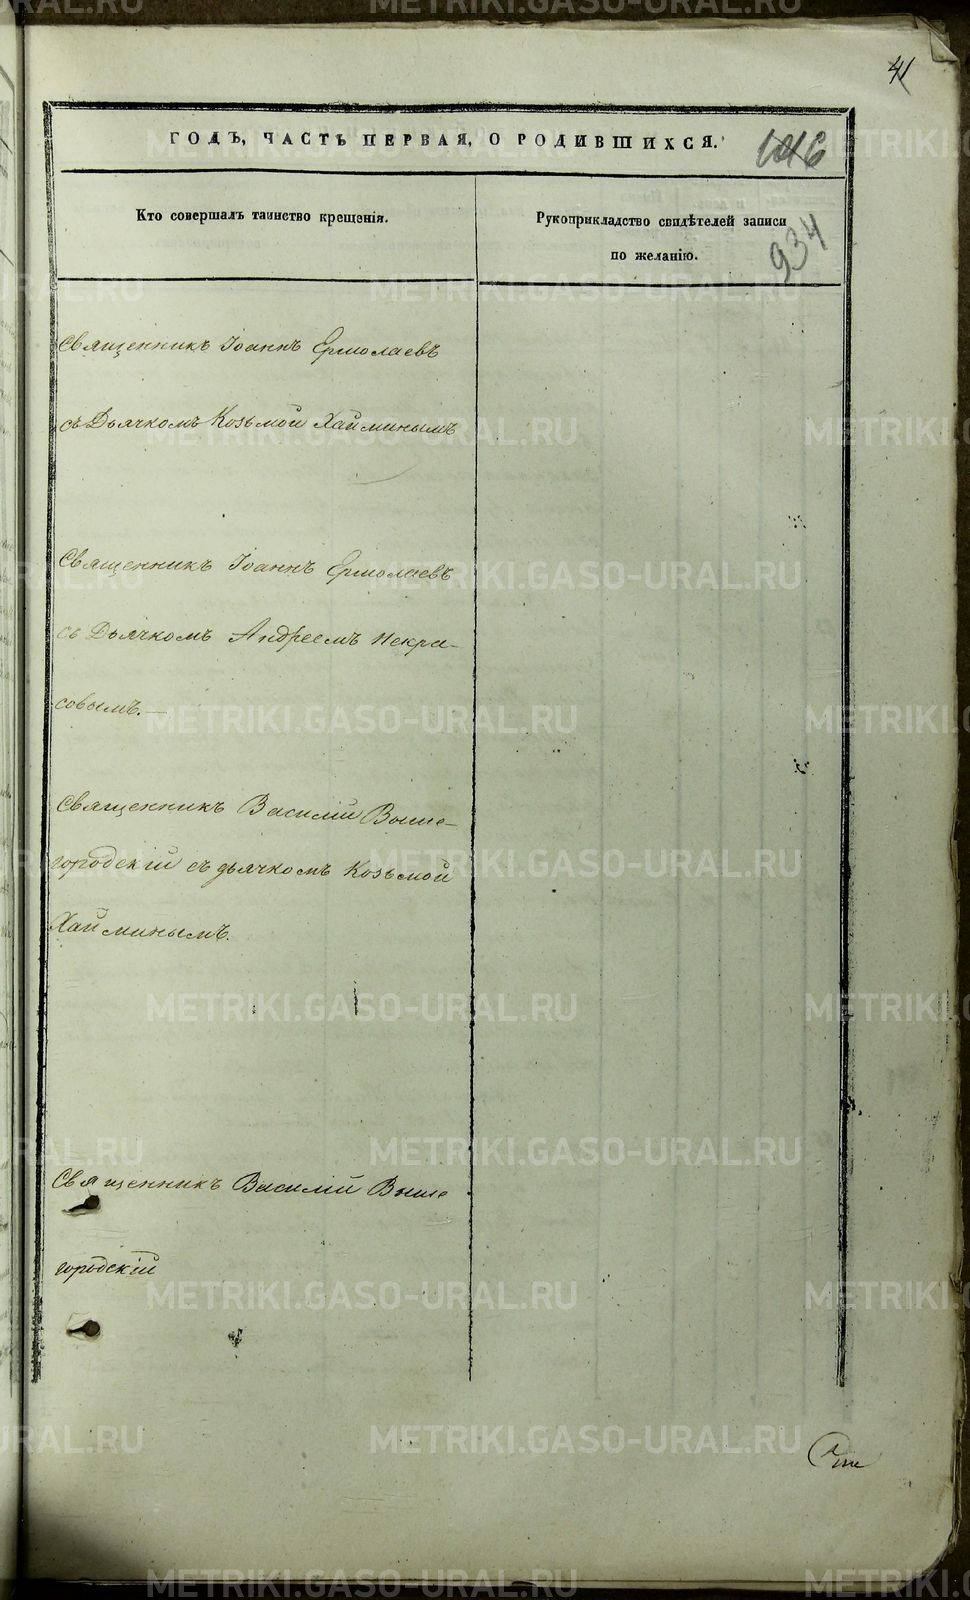 41
ГОДЪ, ЧАСТЬ ПЕРВАЯ, О РОДИВШИХСЯ.
Кто совершалъ таинство крещенія.
Рукоприкладство свидѣтелей записи
по желанію.
934
Священникъ Іоаннъ Ермолаевъ
съ Дьячкомъ Козьмой Хайминымъ
Священникъ Іоаннъ Ермолаевъ
съ Дьячкомъ Андреемъ Некра-
совымъ.—
Священникъ Василій Выше-
городскій съ дьячкомъ Козьмой
Хайминымъ.
Священникъ Василій Выше
городскій
METRIKI.GASO-URAL.RU